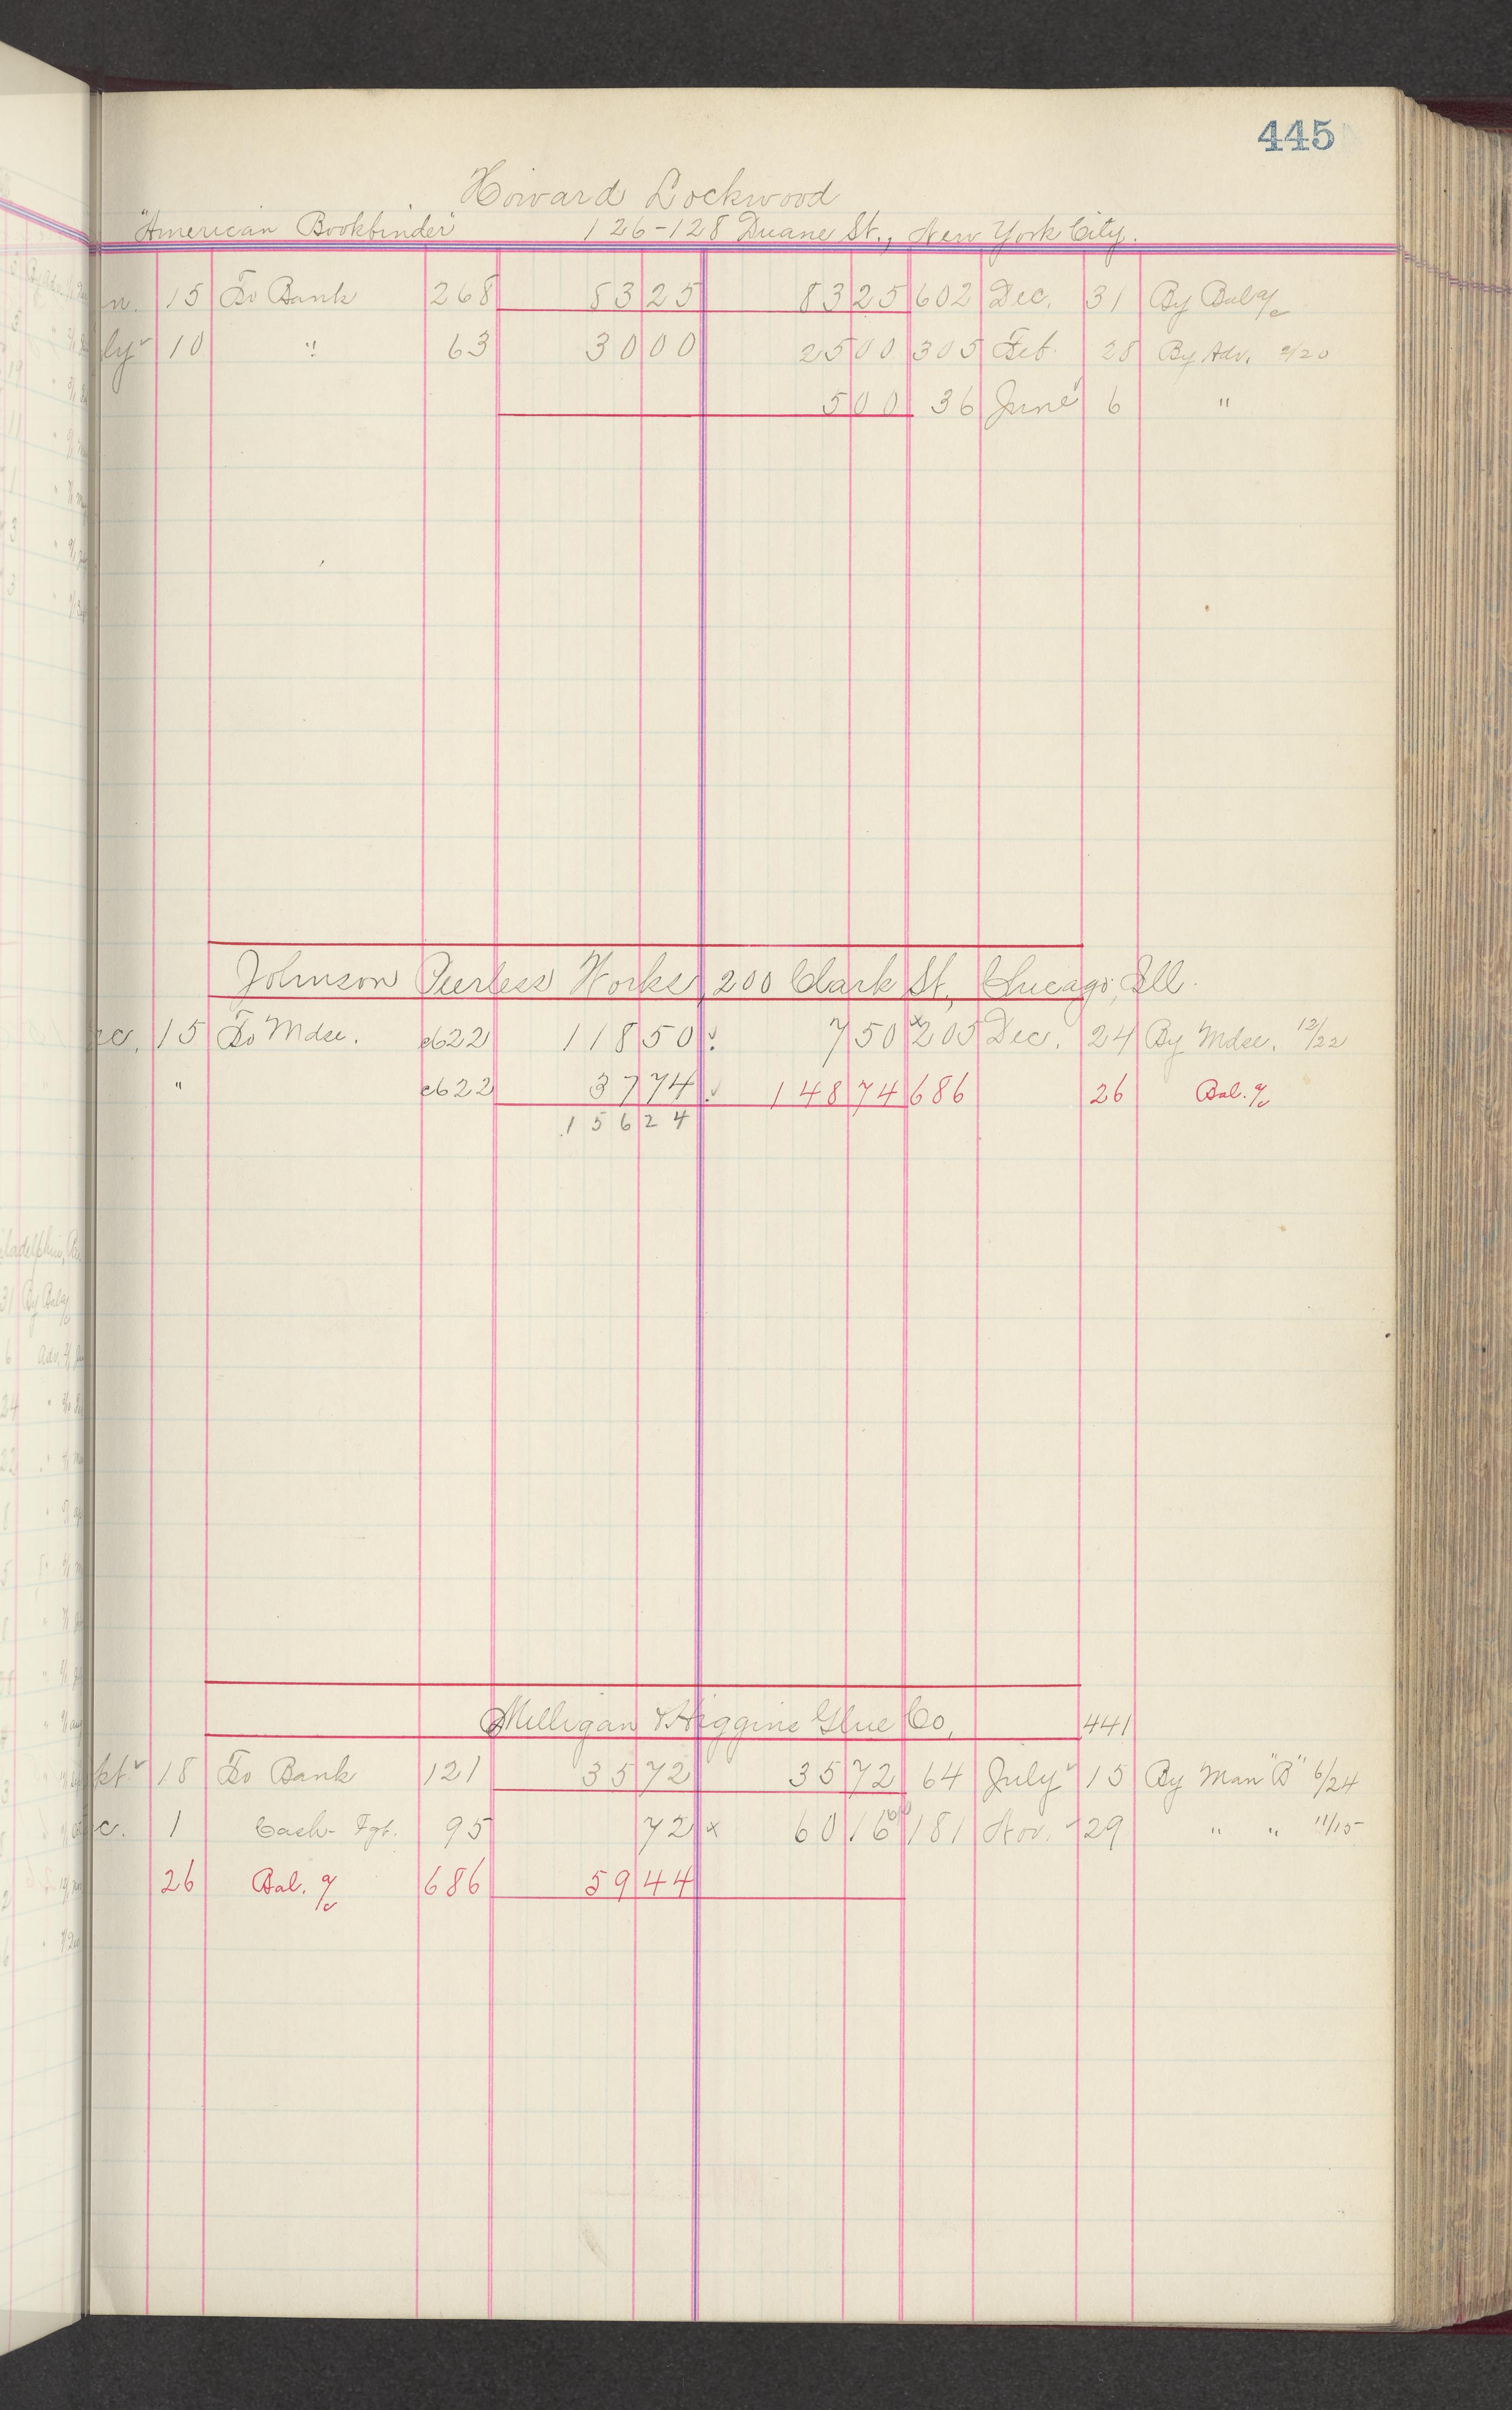 445
Howard Lockwood
"American Bookbinder" 126-128 Duane St., New York City.
n. 15 To Bank 268 83 25 83 25 602 Dec. 31 By Bal a/c
ly 10 " 63 30 00 25 00 305 Feb. 28 By Adv. 2/20
5 00 36 June 6 "
Johnson Peerless Works, 200 Clark St., Chicago, Ill.
ec. 15 To Mdse. c622 118 50 7 50 205 Dec. 24 By Mdse. 12/22
" c622 37 74 148 74 686 26 Bal. a/c
156 24
Milligan & Higgins Glue Co. 441
pt. 18 To Bank 121 35 72 35 72 64 July 15 By Man "B" 6/24
c. 1 Cash - Fgt. 95 72 x 60 16 181 Nov. 29 " " 11/15
26 Bal. a/c 686 59 44